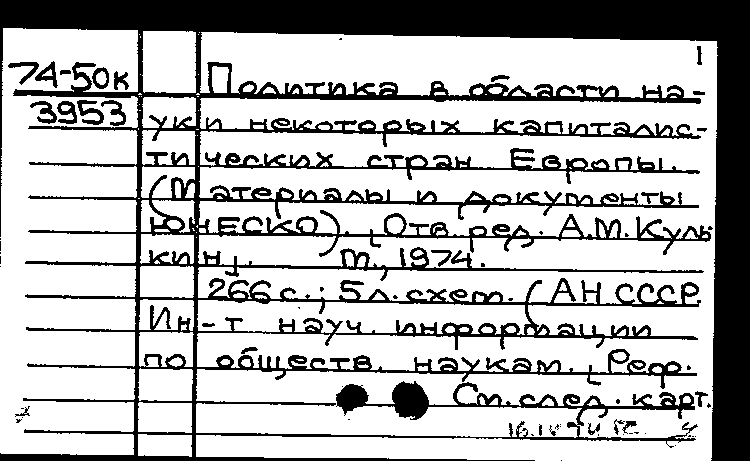 1
74-50к Политика в области на-
3953 уки некоторых капиталис-
тических стран Европы.
(Материалы и документы
ЮНЕСКО). [Отв. ред. А.М. Куль-
кин]. М., 1974.
266 с.; 5 л. схем. (АН СССР.
Ин-т науч. информации
по обществ. наукам. [Реф.
См. след. карт.